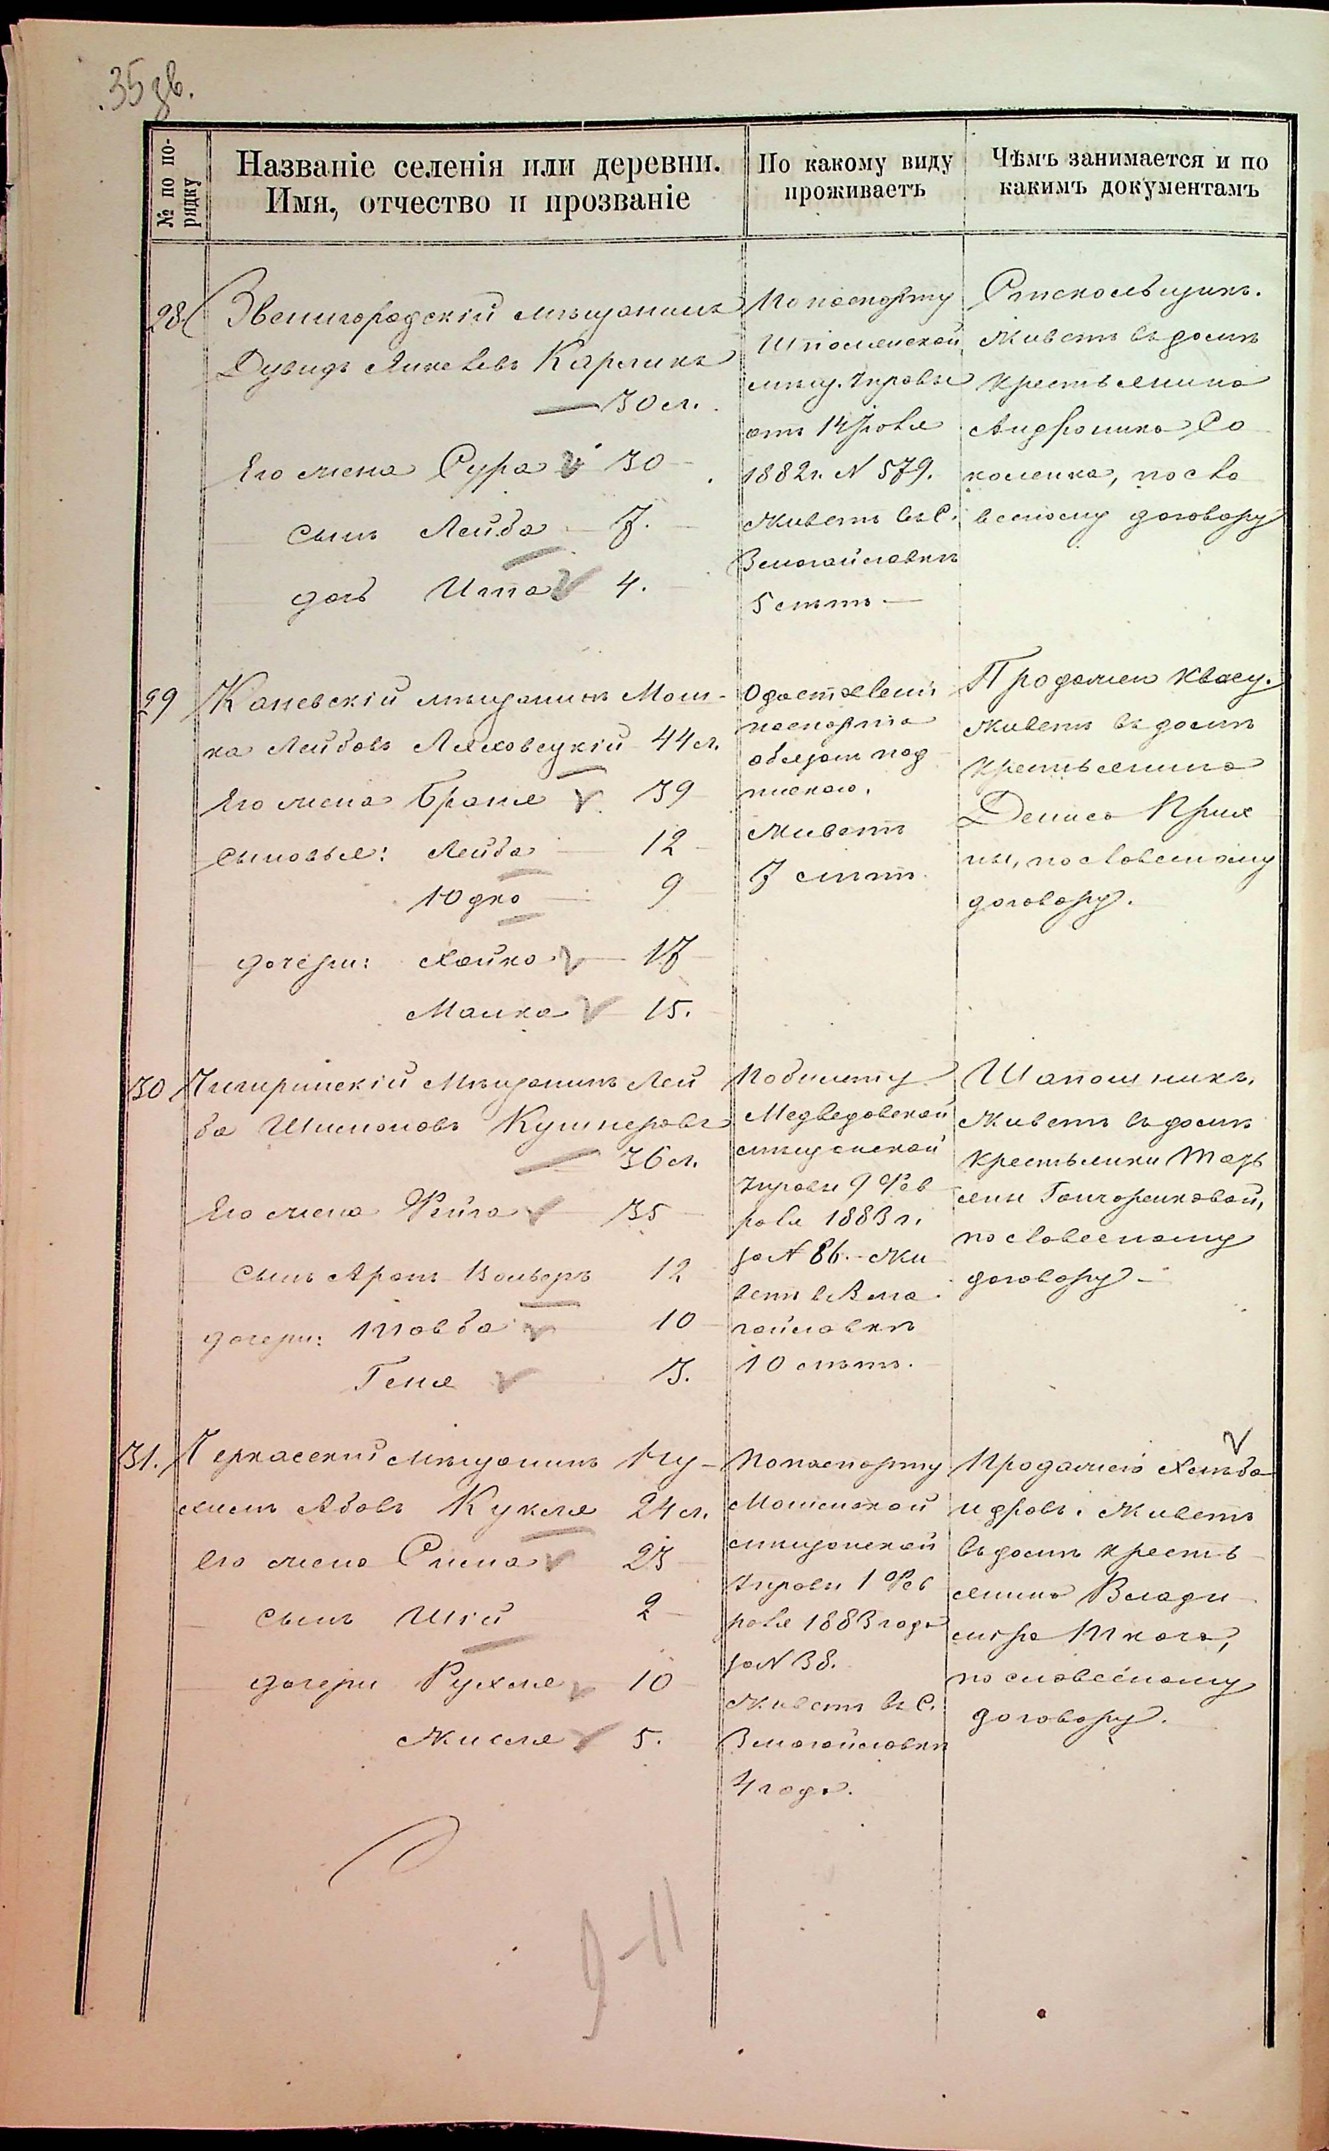 35 зв.
№ по по-
рядку
Названіе селенія или деревни.
Имя, отчество и прозваніе
По какому виду
проживаетъ
Чѣмъ занимается и по
какимъ документамъ
28
Звенигородскій мѣщанинъ
Дувидъ Янкелевъ Карликъ
30 л.
Его жена Сура 30
сынъ Лейба 7.
дочь Итта 4.
По паспорту
Шполянской
мѣщ. Управы
отъ 14
1882 г. N 579.
Живетъ въ с.
Змогайловкѣ
5 лѣтъ
Стекольщикъ.
Живетъ въ домѣ
крестьянина
Андроника Со
коленка, по сло
весному договору
29
Каневскій мѣщанинъ Мош-
ка Лейбовъ Ляховецкій 44 л.
Его жена Браня 39
сыновья: Лейба 12
Юдко 9
дочери: Хайка 17
Малка 15.
О доставленіи
паспорта
обязанъ под
пискою.
Живетъ
7 лѣтъ.
Продажею квасу.
Живетъ въ домѣ
крестьянина
Дениса Прих
ны, по словесному
договору.
30
Чигиринскій мѣщанинъ Лей
ба Шимоновъ Кушнеровъ
36 л.
Его жена Фейга 35
сынъ Аронъ Вольвъ 12
дочери: Товба 10
Геня 3.
По билету
Медведовской
мѣщанской
Управы 9 Фев
раля 1883 г.
за N 86. Жи
ветъ въ Змо
гайловкѣ
10 лѣтъ.
Шапошникъ.
Живетъ въ домѣ
крестьянки Тать
яны Гончаренковой,
по словесному
договору
31.
Черкасскій мѣщанинъ Ну-
химъ Абовъ Кукля 24 л.
Его жена Сима 23
сынъ Шій 2
дочери Рухля 10
Жизля 5.
По паспорту
Мошенской
мѣщанской
Управы 1 Фев
раля 1883 года
за N 38.
Живетъ въ с.
Змогайловкѣ
4 года.
Продажею хлѣба
и дровъ. Живетъ
въ домѣ кресть
янина Влади
міра Ткача,
по словесному
договору.
9-11